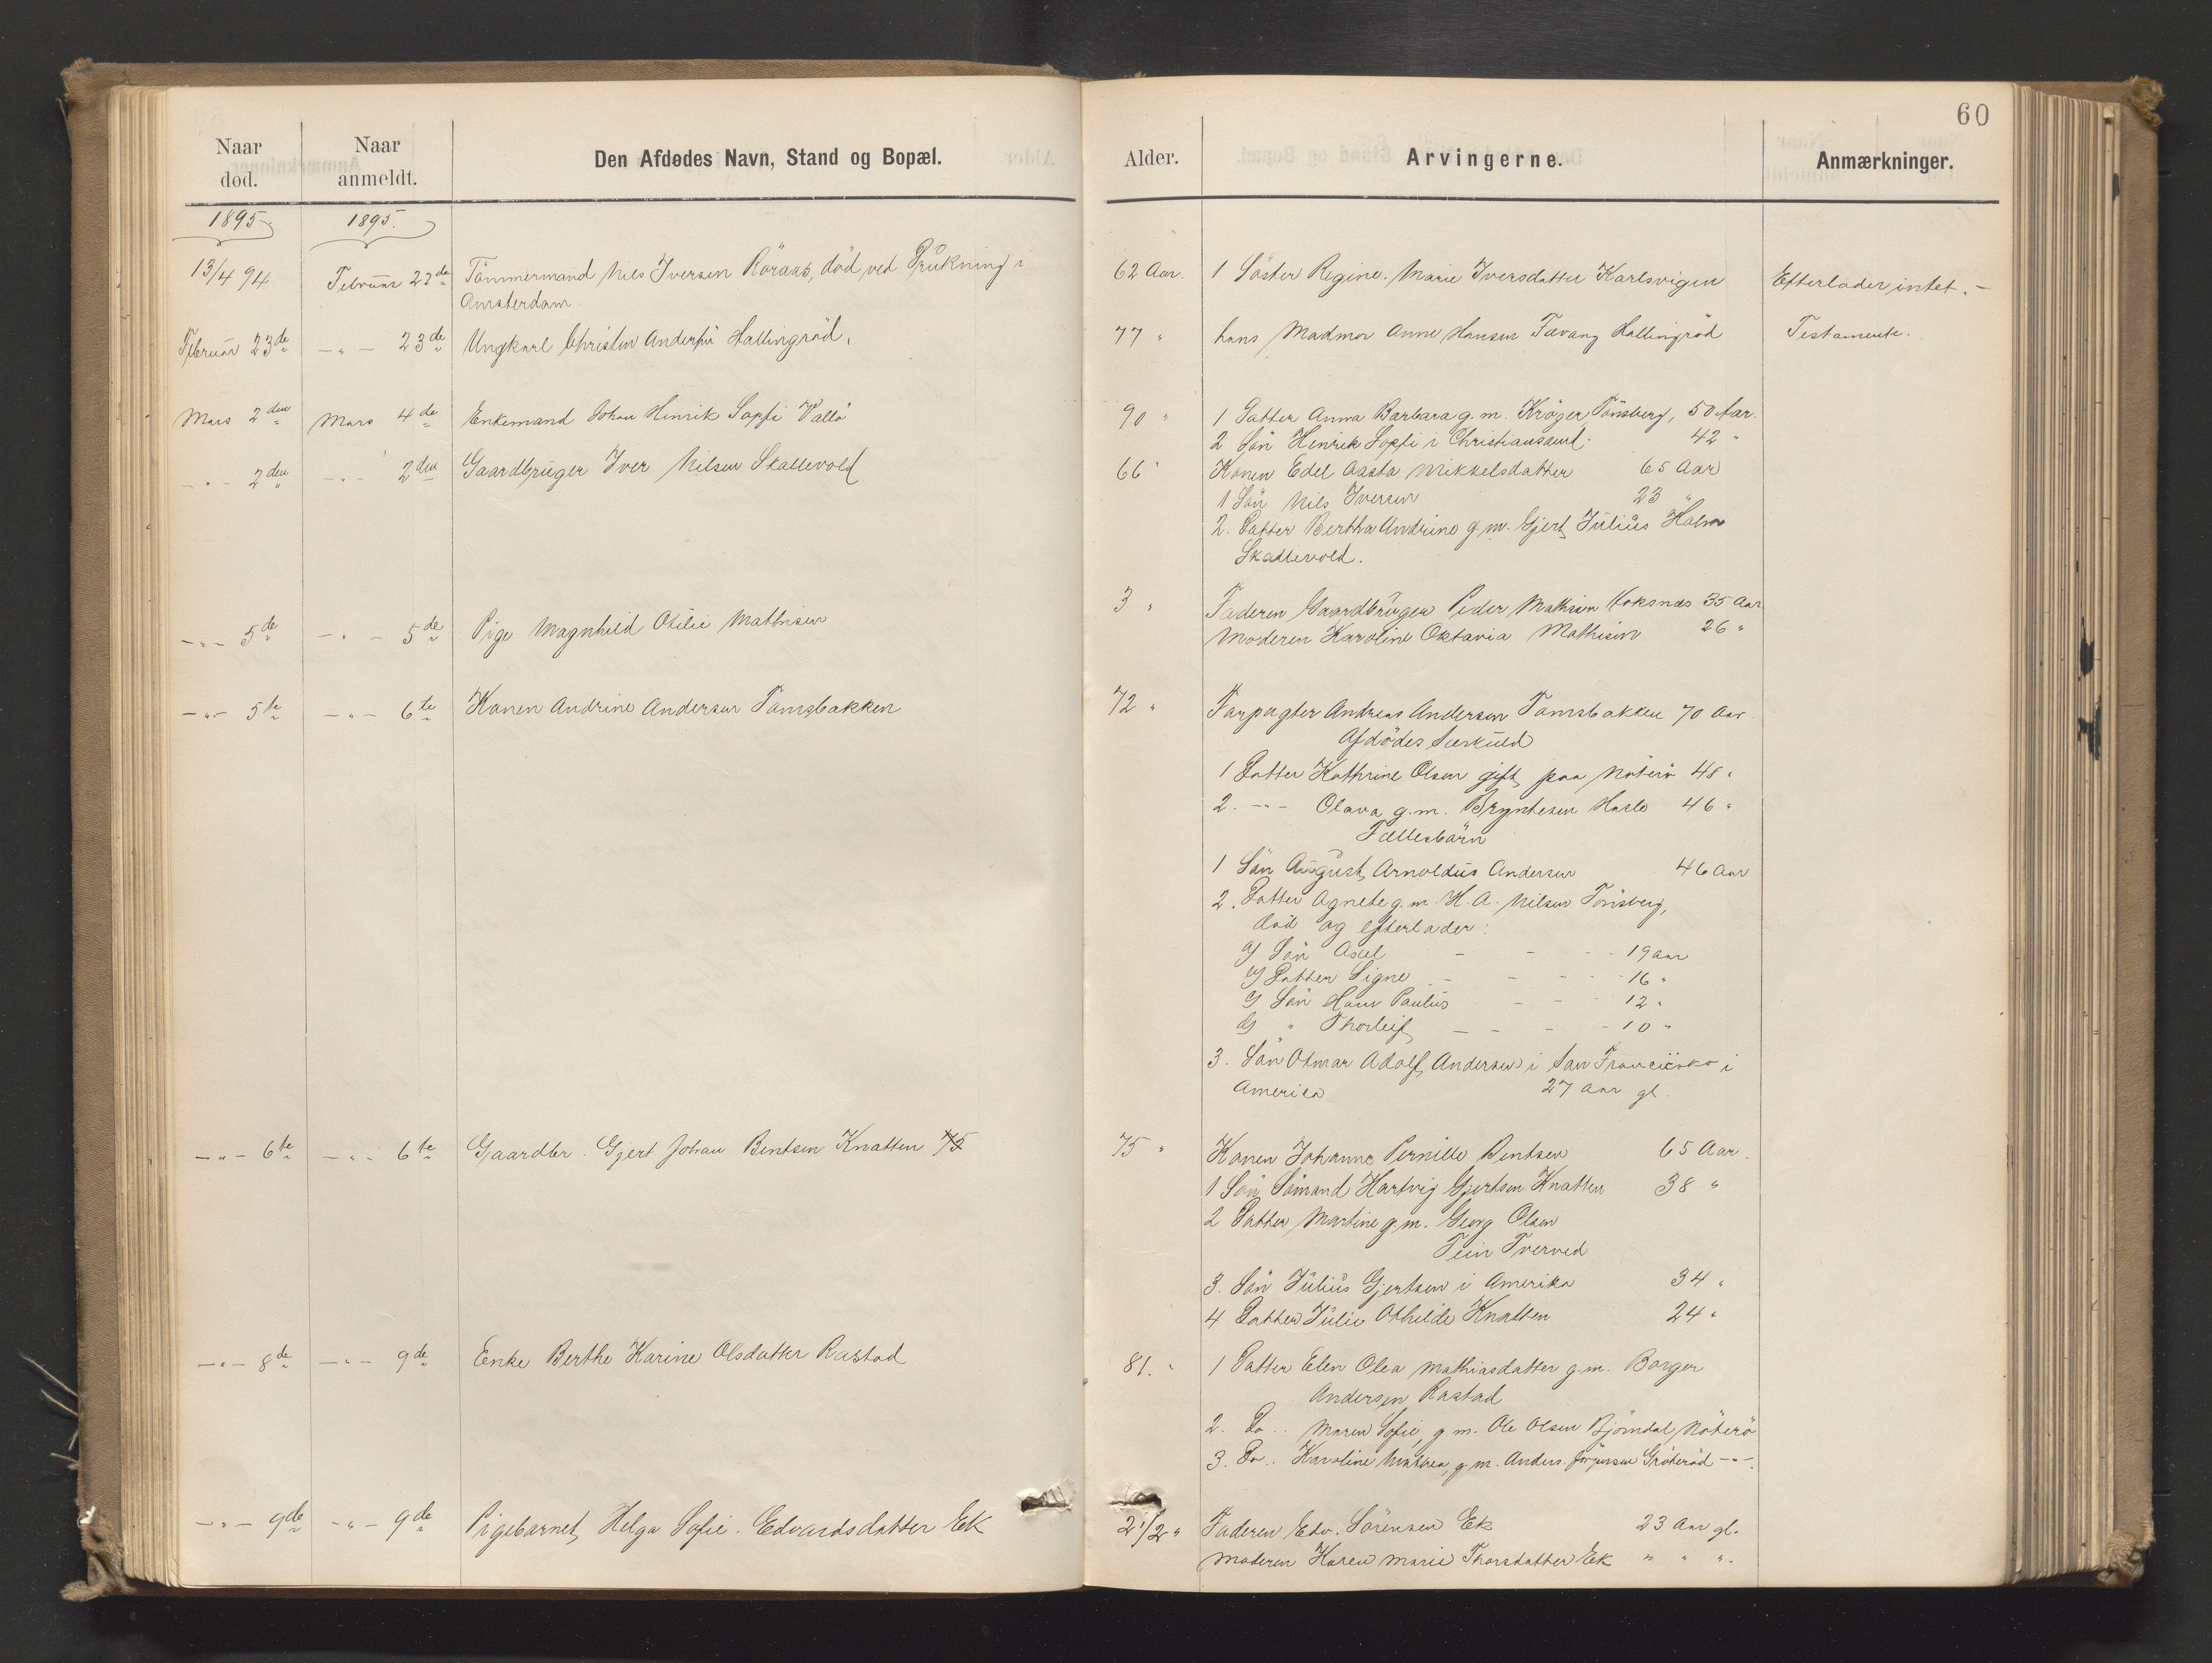 60
Naar død.
Naar anmeldt.
Den Afdødes Navn, Stand og Bopæl.
Alder.
Arvingerne.
Anmærkninger.
1895
1895.
13/4 94
Februar 22de
Tömmermand Nils Iversen Röraas, död ved Drukning i
Amsterdam
62 Aar.
1 Söster Regine Marie Iversdatter Karlsvigen
Efterlader intet.-
Februar 23de
-"- 23de
Ungkarl Christen Andersen Hallingröd,
77 "
hans Madmor Anne Hansen Tavang Hallingröd
Testamente.
Mars 2den
Mars 4de
Enkemand Johan Henrik Sopfi Vallö
90 "
1 Datter Anna Barbara g.m. Kröger Tönsberg, 50 Aar.
2 Sön Henrik Sopfi i Christianssund. 42 "
-"- 2den
-"- 2den
Gaardbruger Iver Nilsen Skallevold
66 "
Konen Edel Aasta Mikkelsdatter 65 Aar
1 Sön Nils Iversen 23 "
2. Datter Bertha Andrine g.m. Gjert Julius Holm
Skallevold.
-"- 5de
-"- 5de
Pige Magnhild Otilie Mathisen
3 "
Faderen Gaardbruger Peder Mathisen 35 Aar
Moderen Karoline Oktavia Mathisen 26 "
-"- 5te
-"- 6te
Konen Andrine Andersen Tomsbakken
72 "
Forpagter Andreas Andersen Tomsbakken 70 Aar
Afdödes Særkuld
1 Datter Kathrine Olsen gift paa Nöterö 48 "
2. -"- Olava g.m. Bryntesen Hasle 46 "
Fællesbörn
1 Sön August Arnoldus Andersen 46 Aar
2. Datter Agnete g.m. H.A. Nilsen Tönsberg,
död og efterlader:
a) Sön Axel - - - 19 aar
b) Datter Signe - - - 16 "
c) Sön Hans Paulus - - 12 "
d) " Thorleif - - - 10 "
3. Sön Otmar Adolf Andersen i San Francisko i
America 27 aar gl.
-"- 6te
-"- 6te
Gaardbr. Gjert Johan Bentsen Knatten 75
75 "
Konen Johanne Pernille Bentsen 65 Aar.
1 Sön Sömand Hartvig Gjertsen Knatten 38 "
2 Datter Martine g.m. Georg Olsen
Tverved
3. Sön Julius Gjertsen i Amerika 34 "
4 Datter Julie Othilde Knatten 24 "
-"- 8de
-"- 9de
Enke Berthe Karine Olsdatter Rastad
81. "
1 Datter Elen Olea Mathiasdatter g.m. Borger
Andersen Rastad
2. Do.. Maren Sofie, g.m. Ole Olsen Bjömdal Nöterö
3. Do.. Karoline Mathea, g.m. Anders Jörgensen Gröteröd -"-
-"- 9de
-"- 9de
Pigebarnet Helga Sofie Edvardsdatter Ek
2 1/2 "
Faderen Edv. Sörensen Ek 23 Aar gl.
Moderen Karen Marie Thorsdatter Ek " " "